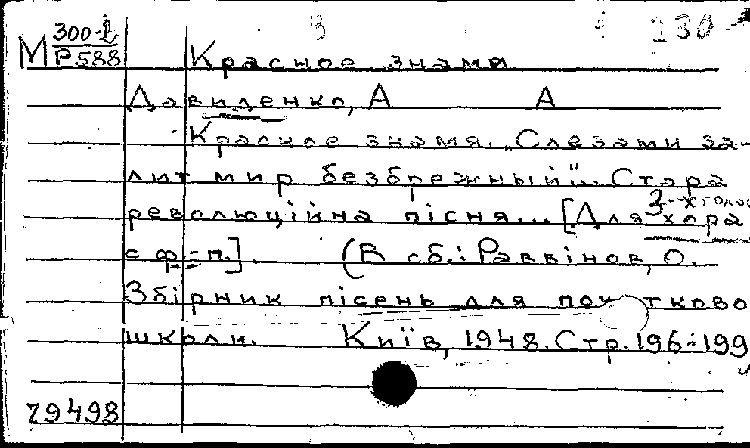 М 300-2 Красное знамя
Р588
Давиденко, А А
Красное знамя. "Слезами за-
лит мир безбрежный"... Стара
революційна пісня... [Для 3-х голос
хора
с ф.-п.]. (В сб.: Раввінов, О.
Збірник пісень для поч тково
школи. Київ, 1948. Стр. 196-199
79498